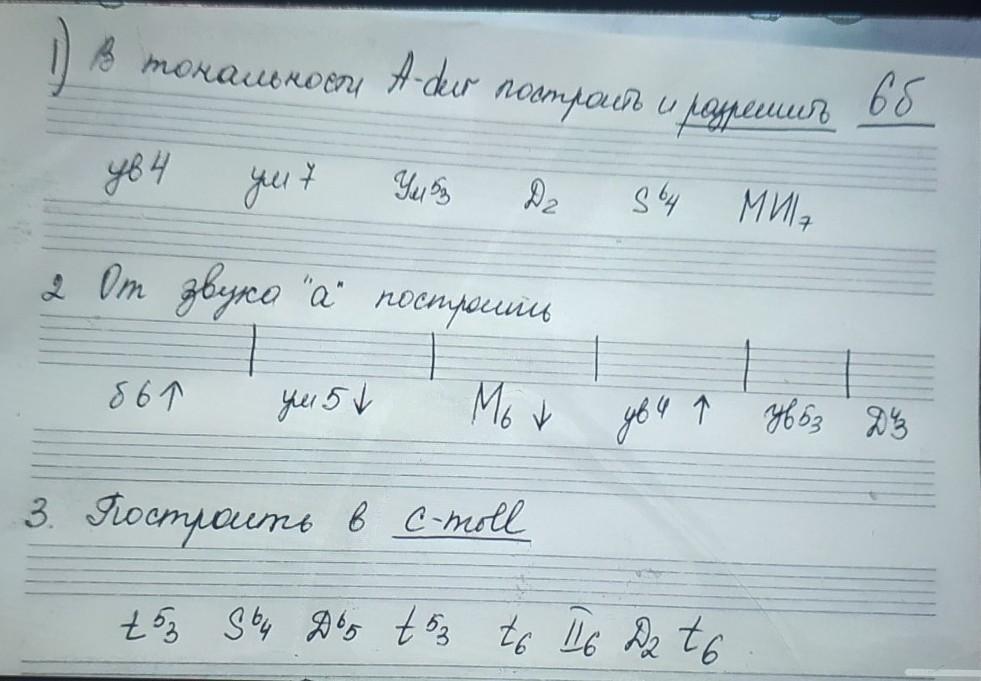 1) В тональности A-dur построить и разрешить 6б
ув4 ум7 Ум53 D2 S64 МVII7
2 От звука "а" построить
б6↑ ум5↓ М6↓ ув4↑ Ув53 D43
3. Построить в c-moll
t53 S64 D65 t53 t6 II6 D2 t6